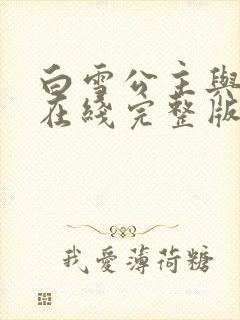 白雪公主與
在綫完整版
我愛薄荷糖